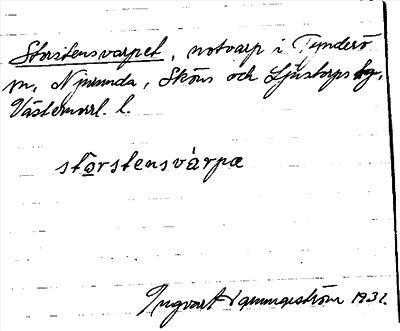 Storstensvarpet, notvarp i Tynderö
m, Njurunda, Sköns och Ljustorps tg,
Västernorrl. l.
stơrstensvàrpæ
Ingvart 1931.